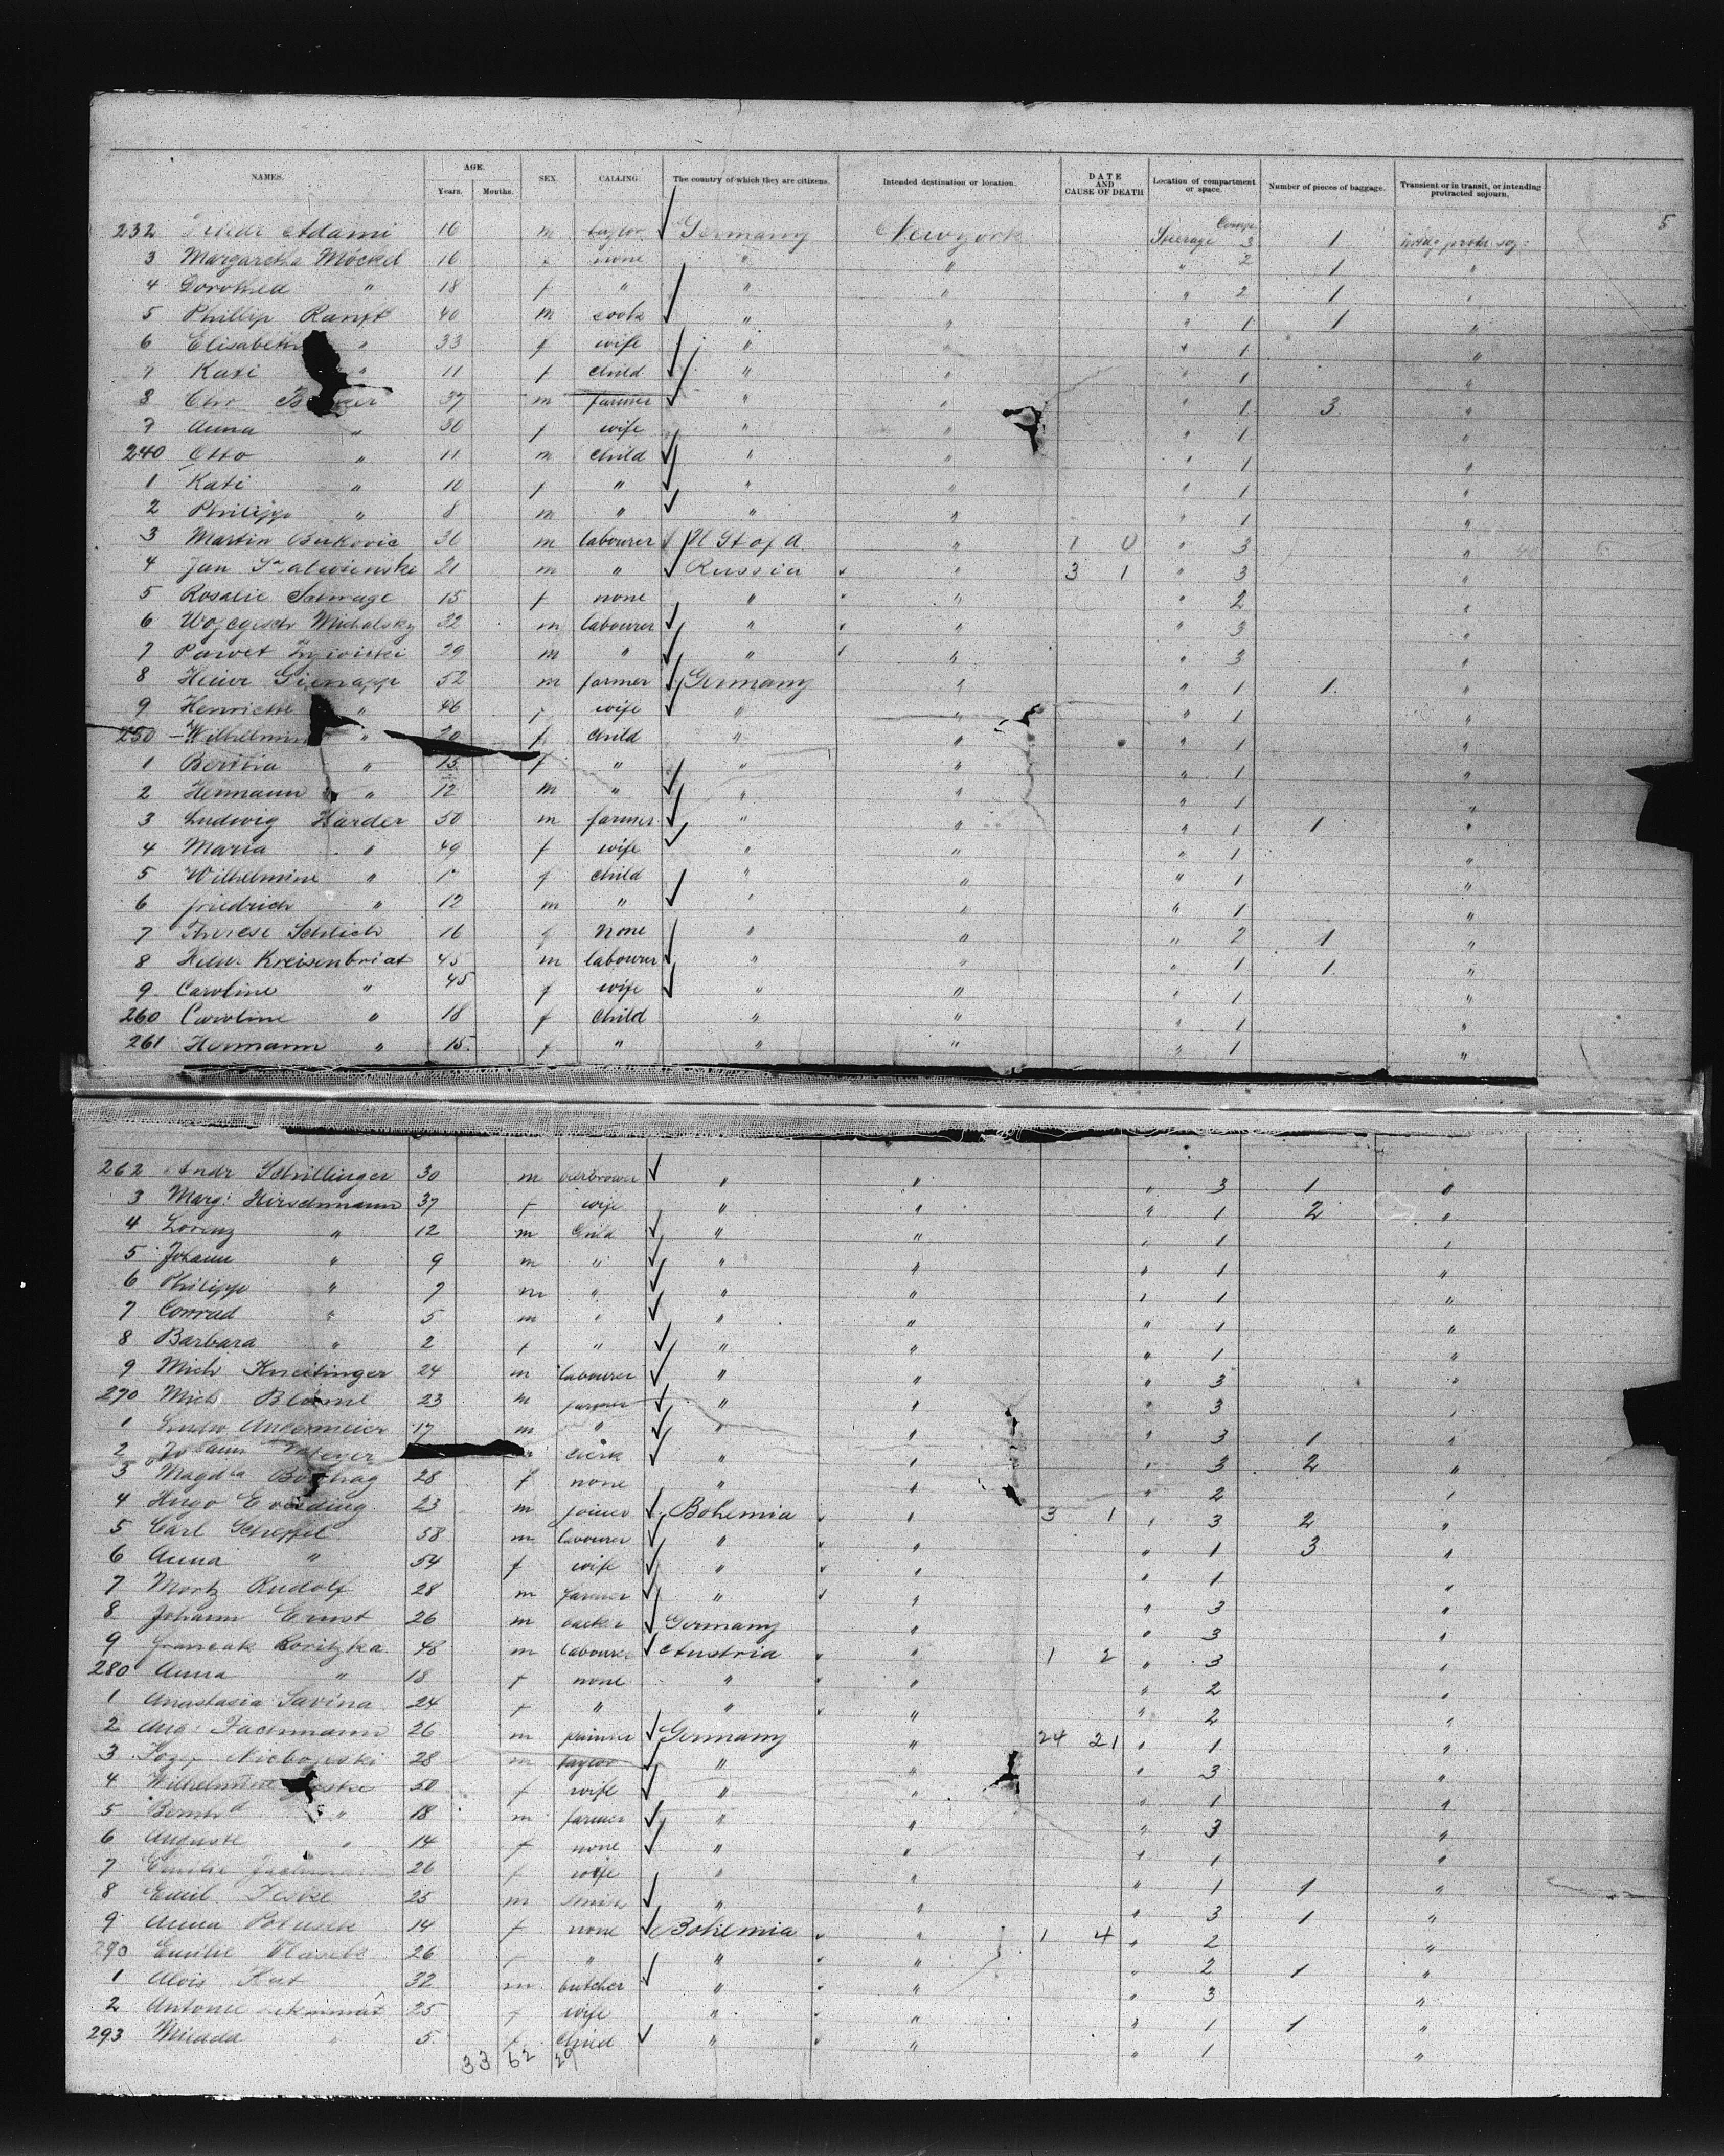 NAMES. AGE. Years. Months. SEX. CALLING. The country of which they are citizens. Intended destination or location. DATE AND CAUSE OF DEATH Location of compartment or space. Number of pieces of baggage. Transient or in transit, or intending protracted sojourn.
5
232 Adami 16 m taylor Germany Newyork Steerage Comp. 3 1
3 Margaretha Möckel 16 f none " " " 2 1 "
4 Dorothea " 18 f " " " " 2 1 "
5 Phillip Ranft 40 m cook " " " 1 1 "
6 Elisabeth " 33 f wife " " " 1 "
7 Kati " 11 f child " " " 1 "
8 Chr 37 m farmer " " " 1 3 "
9 Anna " 36 f wife " " " 1 "
240 Otto " 11 m child " " " 1 "
1 Kati " 10 f " " " " 1 "
2 Philipp " 8 m " " " " 1 "
3 Martin 36 m labourer U St of A " 1 0 " 3 "
4 Jan 21 m " Russia " 3 1 " 3 "
5 Rosalie 15 f none " " " 2 "
6 Michalsky 32 m labourer " " " 3 "
7 29 m " " " " 3 "
8 Heinr Gienapp 52 m farmer Germany " " 1 1 "
9 Henriette " 46 f wife " " " 1 "
250 Wilhelmin " 20 f child " " " 1 "
1 " 15 f " " " " 1 "
2 Hermann " 12 m " " " " 1 "
3 Ludwig Harder 50 m farmer " " " 1 1 "
4 Maria " 49 f wife " " " 1 "
5 Wilhelmine " f child " " " 1 "
6 Friedrich " 12 m " " " " 1 "
7 Therese Schlich 16 f none " " " 2 1 "
8 Heinr Kreisenbriat 45 m labourer " " " 1 1 "
9 Caroline " 45 f wife " " " 1 "
260 Caroline " 18 f child " " " 1 "
261 Hermann " 15 f " " " " 1 "
262 Andr Schillinger 30 m " " " 3 1 "
3 Marg: Hirschmann 37 f wife " " " 1 2 "
4 Lorenz " 12 m child " " " 1 "
5 Johann " 9 m " " " " 1 "
6 Philipp " 7 m " " " " 1 "
7 Conrad " 5 m " " " " 1 "
8 Barbara " 2 f " " " " 1 "
9 Mich Kneitinger 24 m labourer " " " 3 "
270 Mich 23 m farmer " " " 3 "
1 Ludw Angermeier 17 m " " " " 3 1 "
2 Johann clerk " " " 3 2 "
3 Magd^la 28 f none " " " 2 "
4 Hugo 23 m joiner Bohemia " 3 1 " 3 2 "
5 Carl 58 m labourer " " " 1 3 "
6 Anna " 54 f wife " " " 1 "
7 Moritz Rudolf 28 m farmer " " " 3 "
8 Johann Ernst 26 m Germany " " 3 "
9 48 m labourer Austria " 1 2 " 3 "
280 Anna " 18 f none " " " 2 "
1 Anastasia Savina 24 f " " " " 2 "
2 Aug: 26 m Germany " 24 21 " 1 "
3 28 m taylor " " " 3 "
4 Wilhelmine 50 f wife " " " 1 "
5 Bernh^d " 18 m farmer " " " 3 "
6 Auguste " 14 f none " " " 1 "
7 Emilie 26 f wife " " " 1 1 "
8 Emil Jeske 25 m " " " 3 1 "
9 Anna 14 f none Bohemia " 1 4 " 2 "
290 Emilie 26 f " " " " 2 1 "
1 Alois 32 m butcher " " " 3 "
2 Antonie 25 f wife " " " 1 1 "
293 " 5 f child " " " 1 "
33 62 29